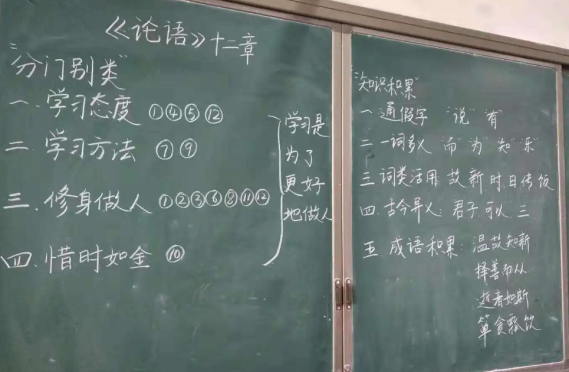 《论语》十二章
"分门别类"
一.学习态度 ①④⑤⑫
二.学习方法 ⑦⑨
三.修身做人 ①②③⑥⑧⑪⑫
四.惜时如金 ⑩
学习是
为了
更好
地做人
"知识积累"
一 通假字 "说" "有"
二 一词多义 而 为 知 乐
三 词类活用 故 新 时 日 传 饭
四 古今异义 君子 可以 三
五 成语积累 温故知新
择善而从
逝者如斯
箪食瓢饮